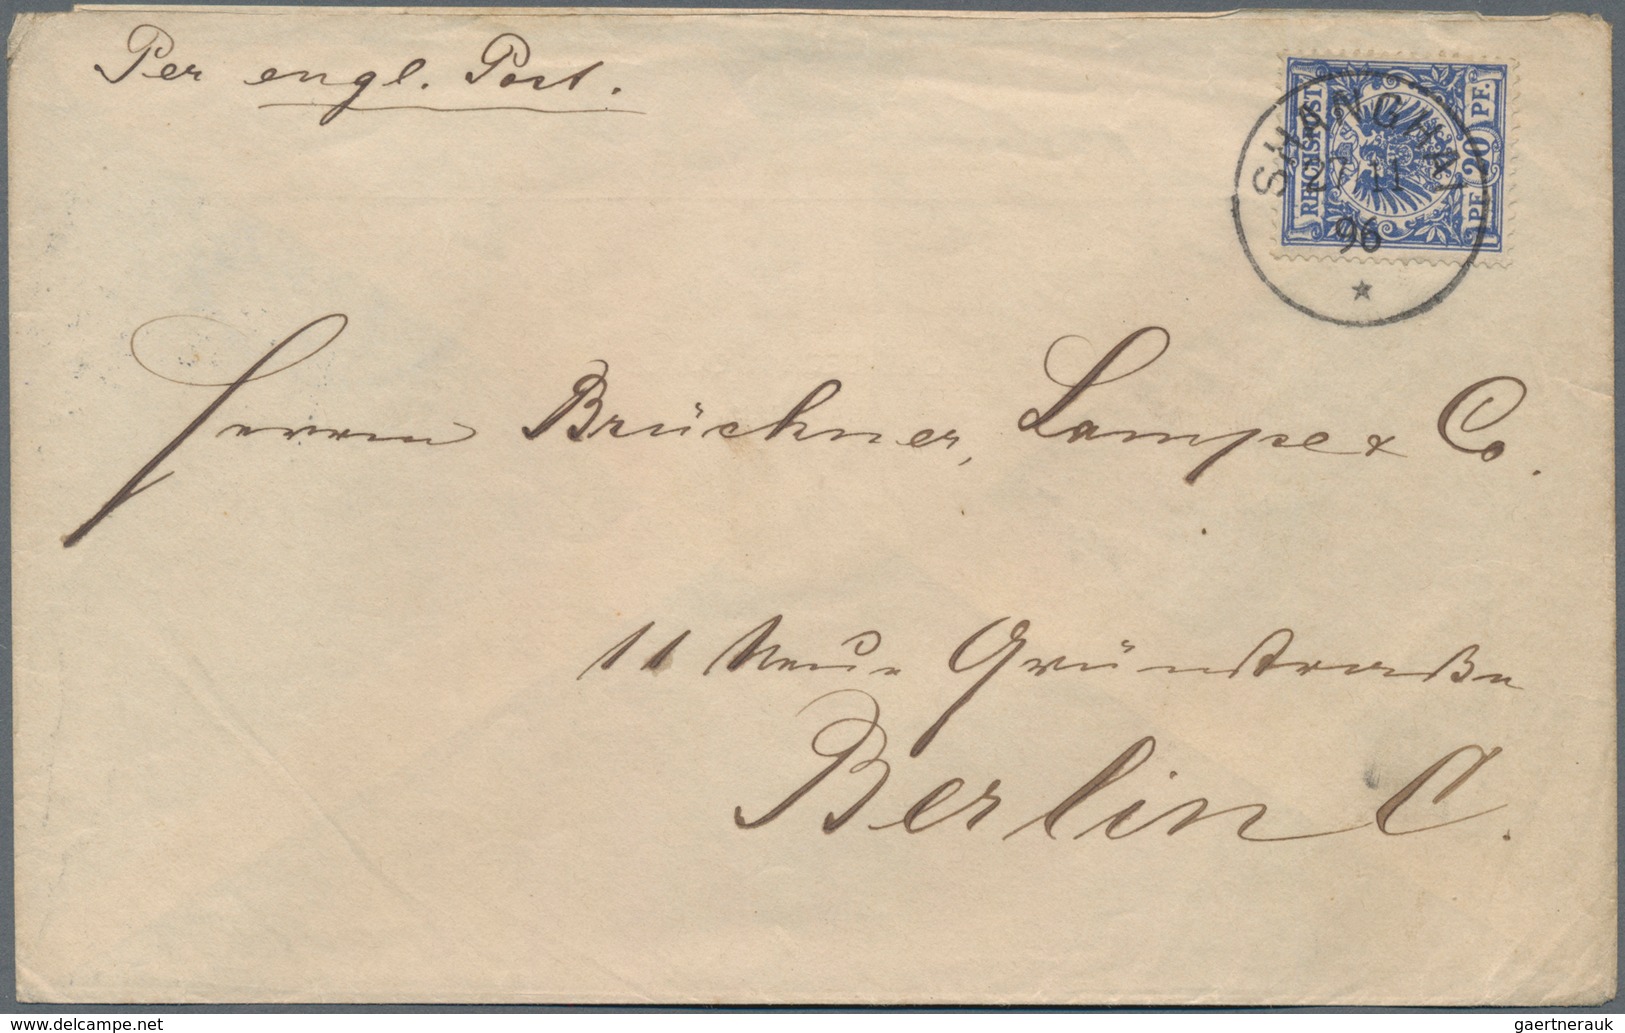 Per engl. Post.
REICHSPOST
PF. 20 PF.
SHANGHAI
27 11
96
Herren Brückner, Lampe & Co.
11 Neue Grünstraße
Berlin C.
www.delcampe.net
gaertnerauk